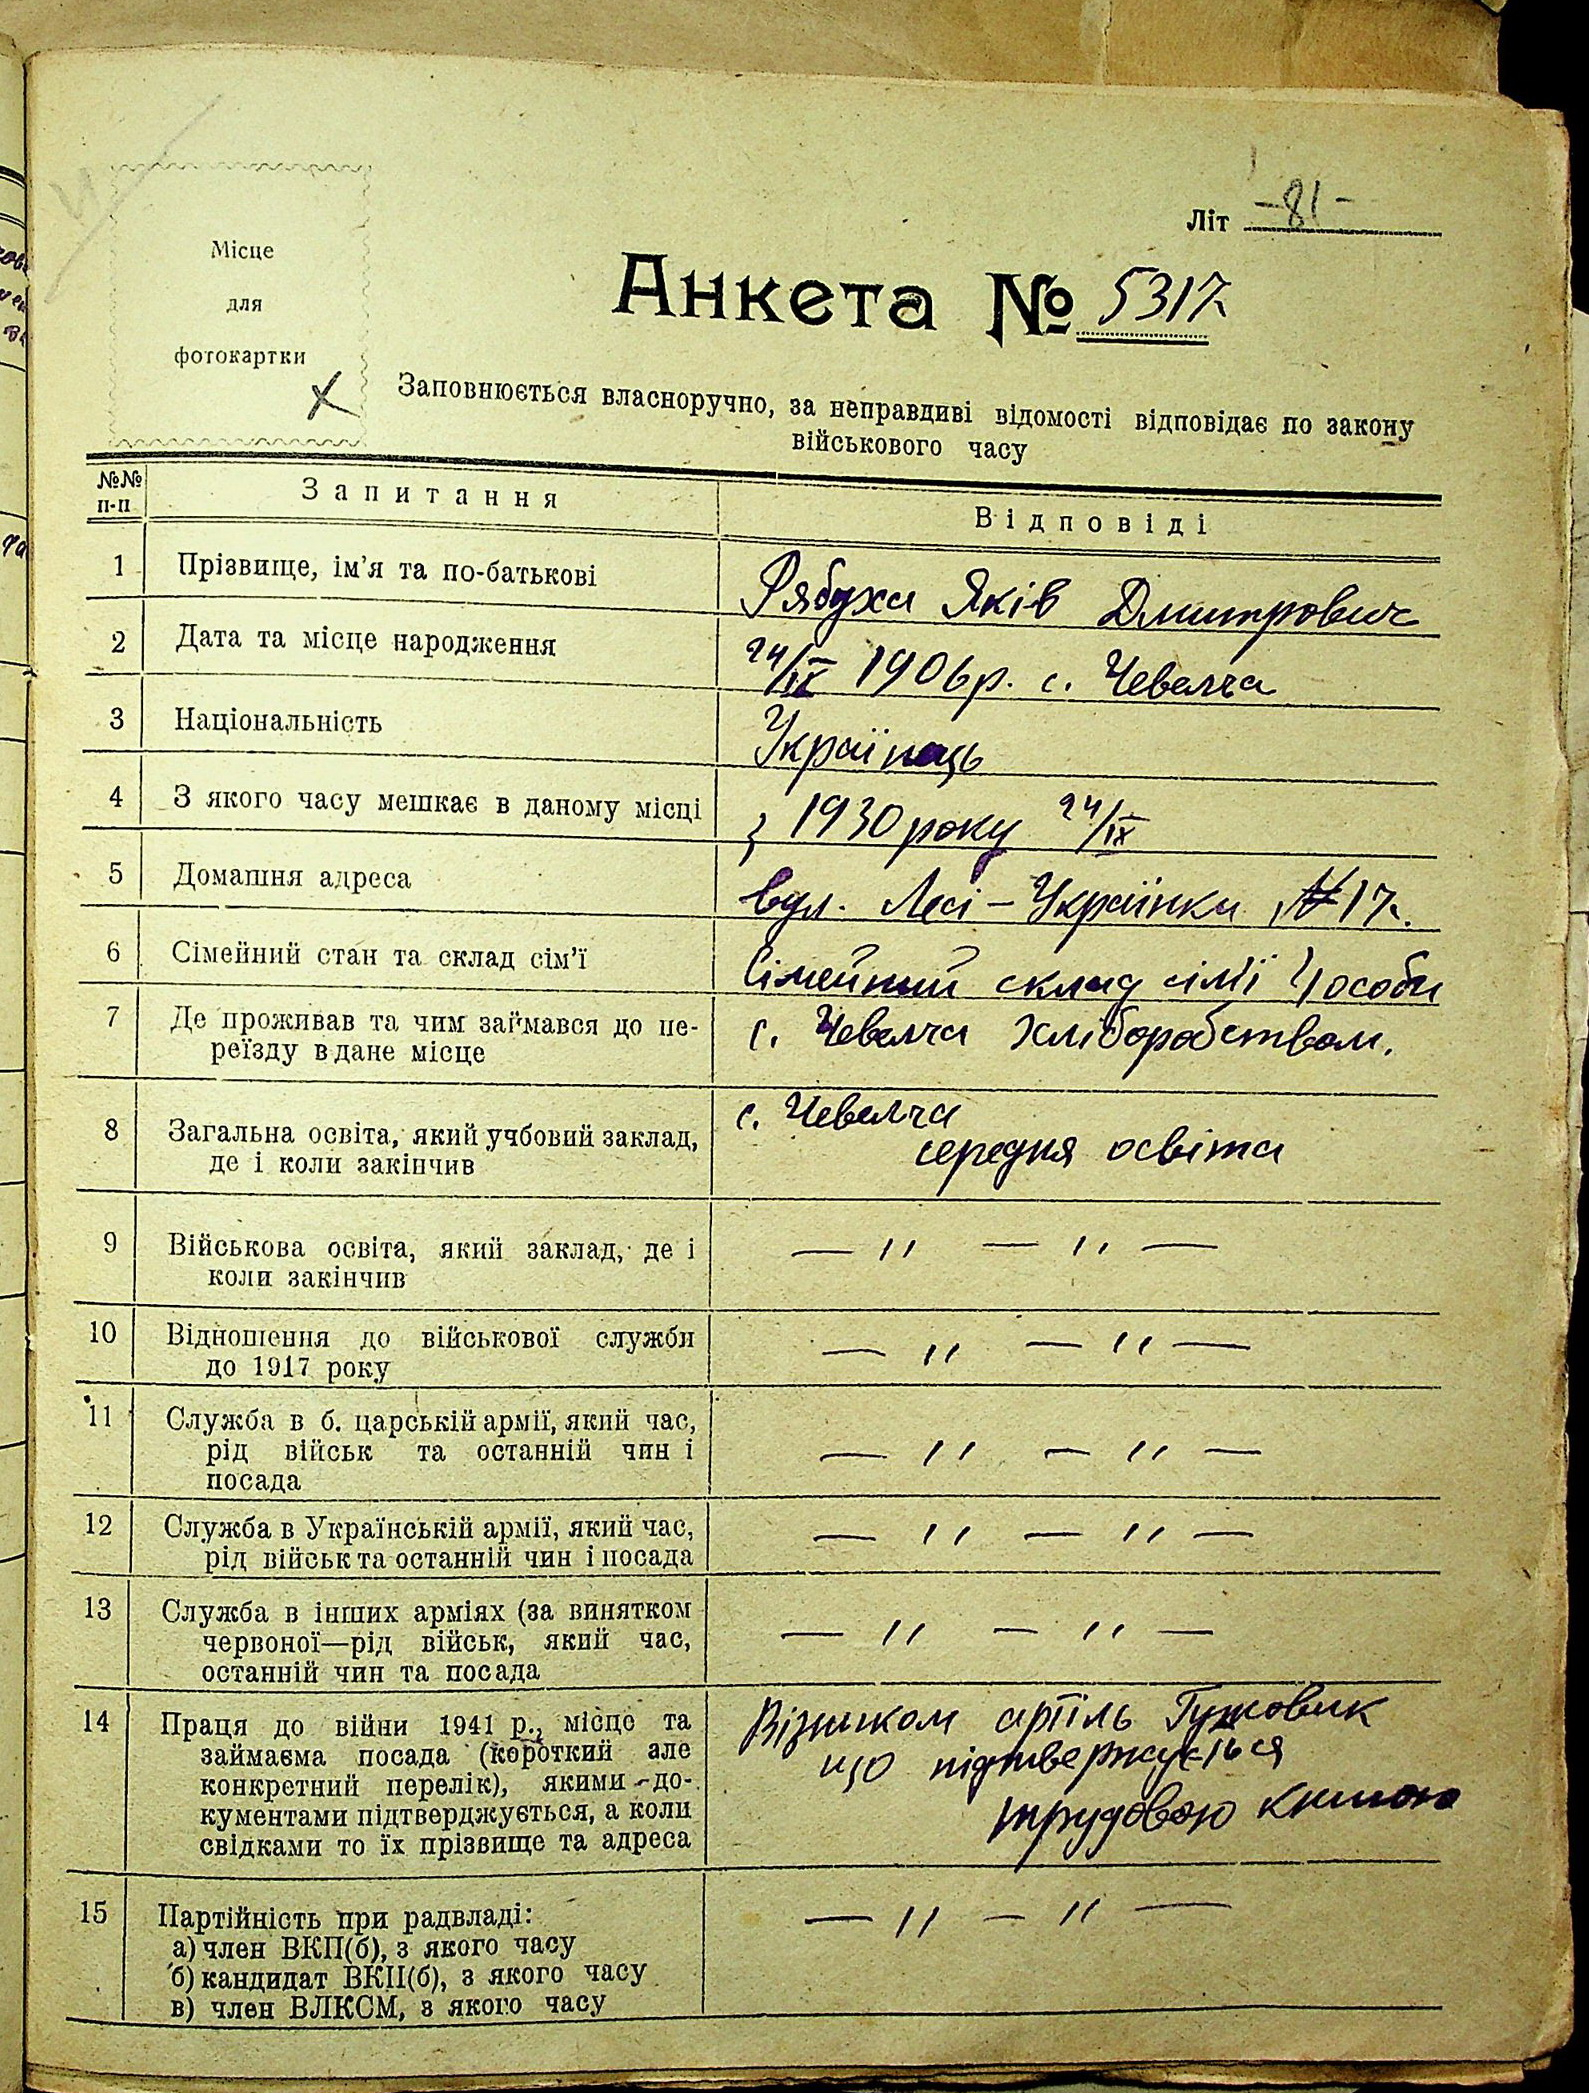 Літ -81-
Місце
для
фотокартки
Анкета № 5317
Заповнюється власноручно, за неправдиві відомості відповідає по закону
військового часу
№№
п-п
Запитання
Відповіді
1 Прізвище, ім'я та по-батькові
Рябуха Яків Дмитрович
2 Дата та місце народження
24/IX 1906 р. с. Чевелча
3 Національність
Українець
4 З якого часу мешкає в даному місці
з 1930 року 24/IX
5 Домашня адреса
вул. Лесі-Українки № 17.
6 Сімейний стан та склад сім'ї
Сімейний склад сімї 4 особи
7 Де проживав та чим займався до пе-
реїзду в дане місце
с. Чевелча Хліборобством.
8 Загальна освіта, який учбовий заклад,
де і коли закінчив
с. Чевелча
середня освіта
9 Військова освіта, який заклад, де і
коли закінчив
— " — " —
10 Відношення до військової служби
до 1917 року
— " — " —
11 Служба в б. царській армії, який час,
рід військ та останній чин і
посада
— " — " —
12 Служба в Українській армії, який час,
рід військ та останній чин і посада
— " — " —
13 Служба в інших арміях (за винятком
червоної—рід військ, який час,
останній чин та посада
— " — " —
14 Праця до війни 1941 р., місце та
займаєма посада (короткий але
конкретний перелік), якими до-
кументами підтверджується, а коли
свідками то їх прізвище та адреса
Візником артіль Гужовик
що підтвержується
трудовою книгою
15 Партійність при радвладі:
а) член ВКП(б), з якого часу
б) кандидат ВКП(б), з якого часу
в) член ВЛКСМ, з якого часу
— " — " —